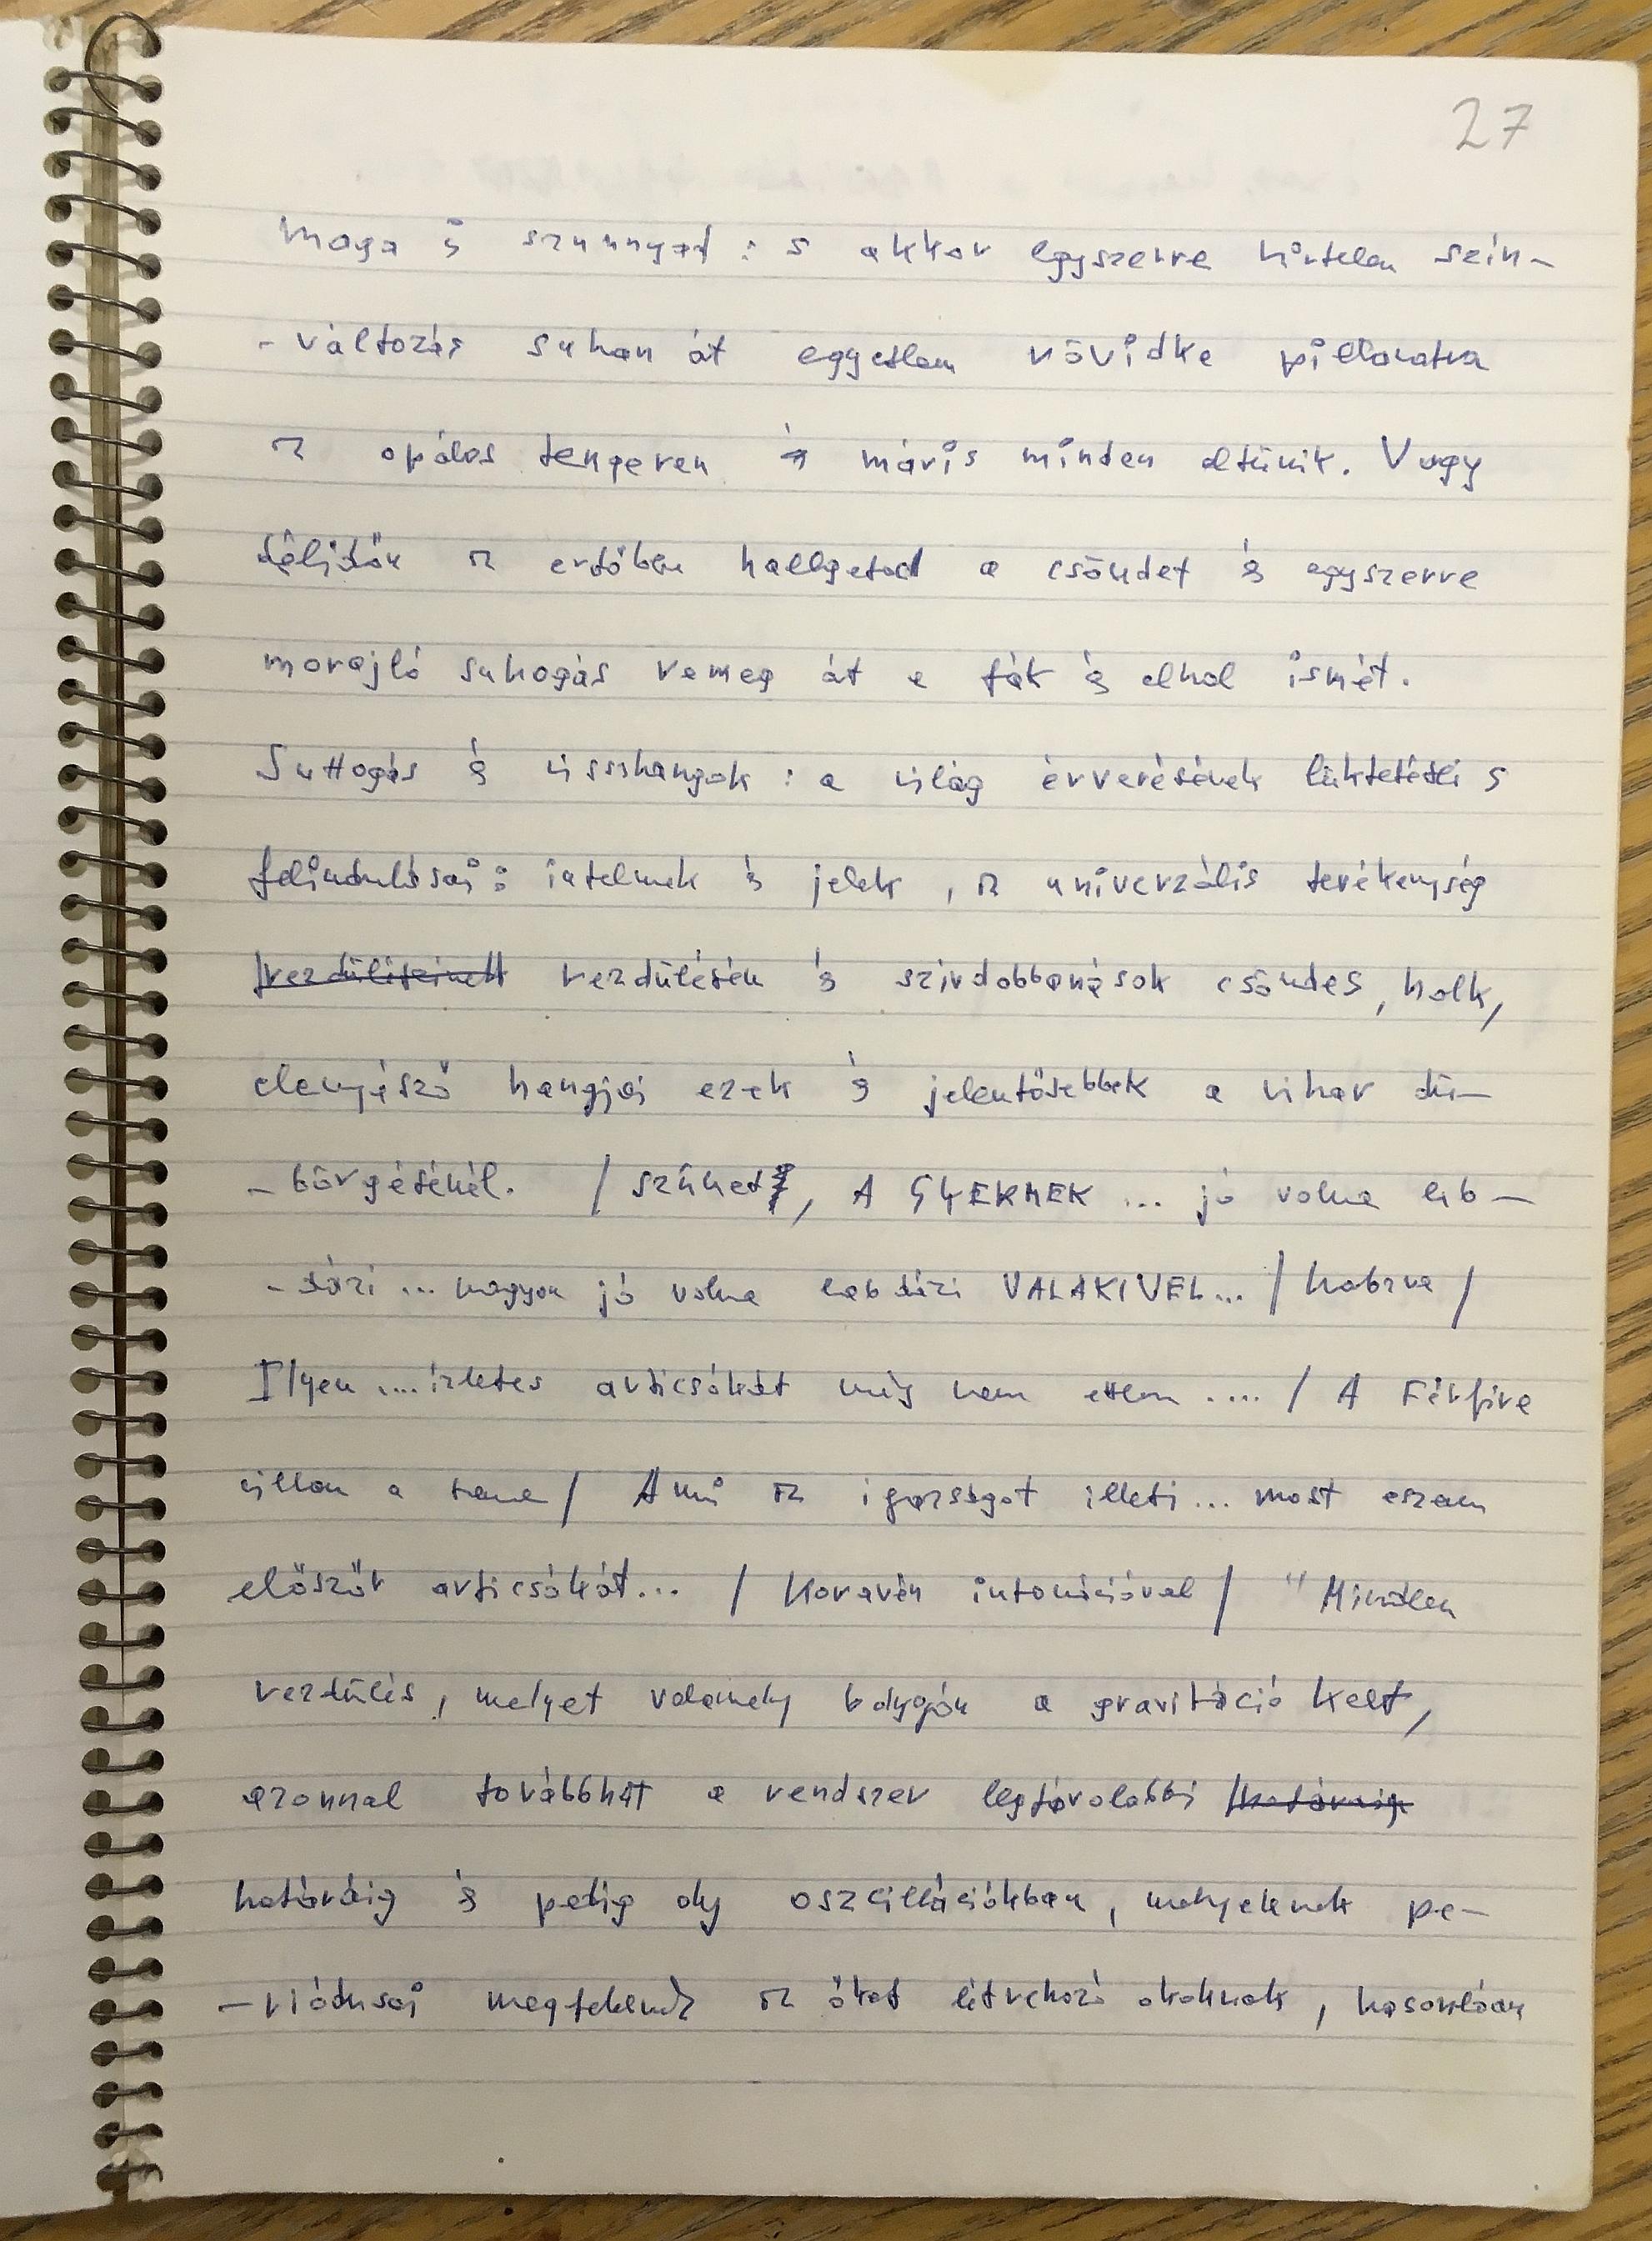 27
maga is szunnyad : s akkor egyszerre hirtelen szín-
-változás suhan át egyetlen rövidke pillanatra
az opálos tengeren és máris minden eltünik. Vagy
délidőn az erdőben hallgatod a csöndet és egyszerre
morajló suhogás remeg át a fák és elhal ismét.
Suttogás és visszhangok : a világ érverésének lüktetései s
felindulásai : intelmek és jelek , az univerzális tevékenység
rezdüléseinek rezdülésén és szívdobbanások csöndes, halk,
elenyésző hangjai ezek és jelentősebbek a vihar dü-
-börgésénél. / szünet, A GYERMEK ... jó volna lab-
-dázi ... nagyon jó volna labdázi VALAKIVEL... / habzsa /
Ilyen .... izletes articsókát még nem ettem .... / A Férfire
villan a szeme / Ami az igazságot illeti ... most eszem
először articsókát... / Koravén intonációval / "Minden
rezdülés , melyet valamely bolygón a gravitáció kelt,
azonnal továbbhat a rendszer legtávolabbi határaig
határáig és pedig oly oszcillációkban , melyeknek pe-
-riódusai megfelelnek az őket létrehozó okoknak , hasonlóan